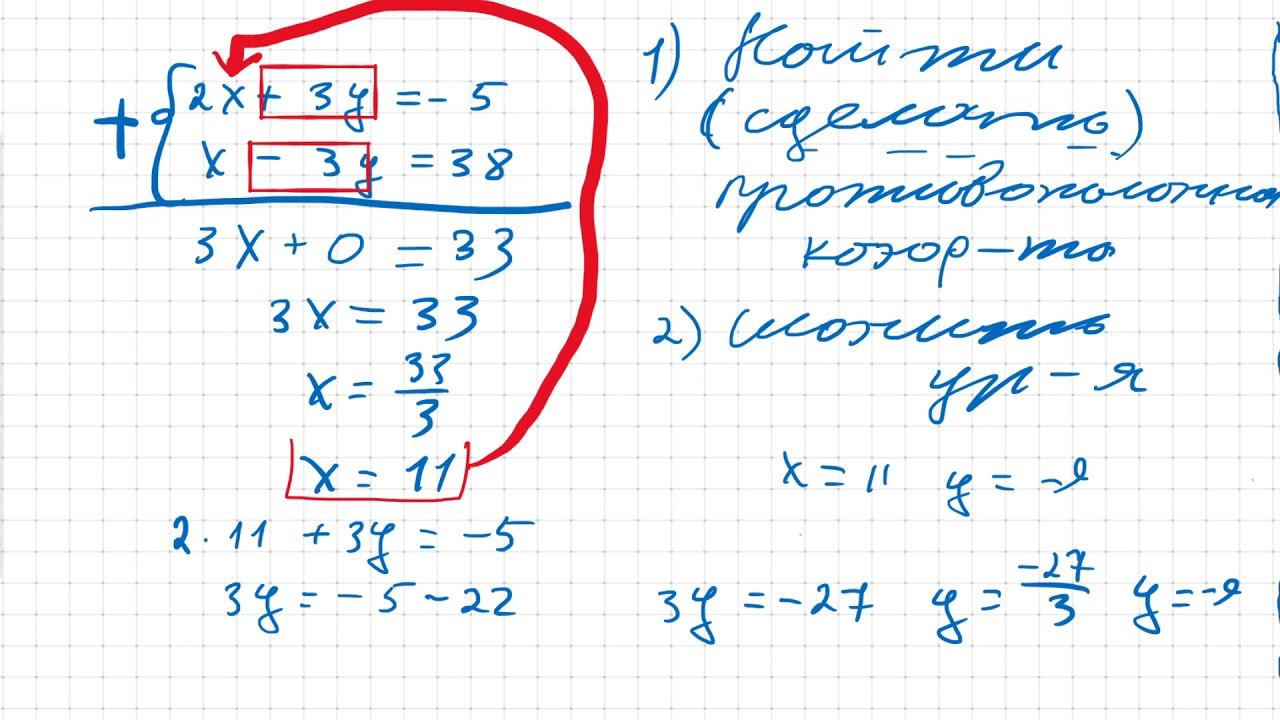 2x + 3y = - 5
+
x - 3y = 38
3x + 0 = 33
3x = 33
x = 33/3
x = 11
2 · 11 + 3y = -5
3y = - 5 - 22
1) Найти
(сделать)
противоположн
коэф-ты
2) сложить
ур-я
x = 11 y = -9
3y = -27 y = -27/3 y = -9